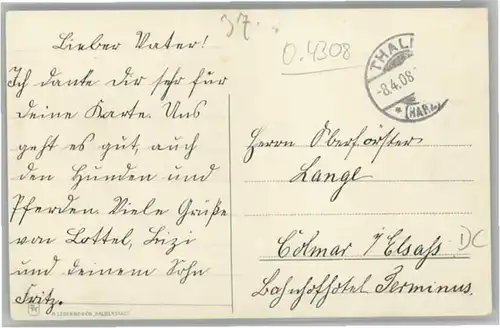 37.
0.4308
THAL
-8.4.08
* (HARZ
Lieber Vater!
Ich danke dir sehr für
deine Karte. Uns
geht es gut, auch
den Hunden und
Pferden. Viele Grüße
von Lottel, Lizi
und deinem Sohn
Fritz.
Herrn Oberförster
Lange
Colmar i/Elsaß
Bahnhofhotel Terminus.
DC